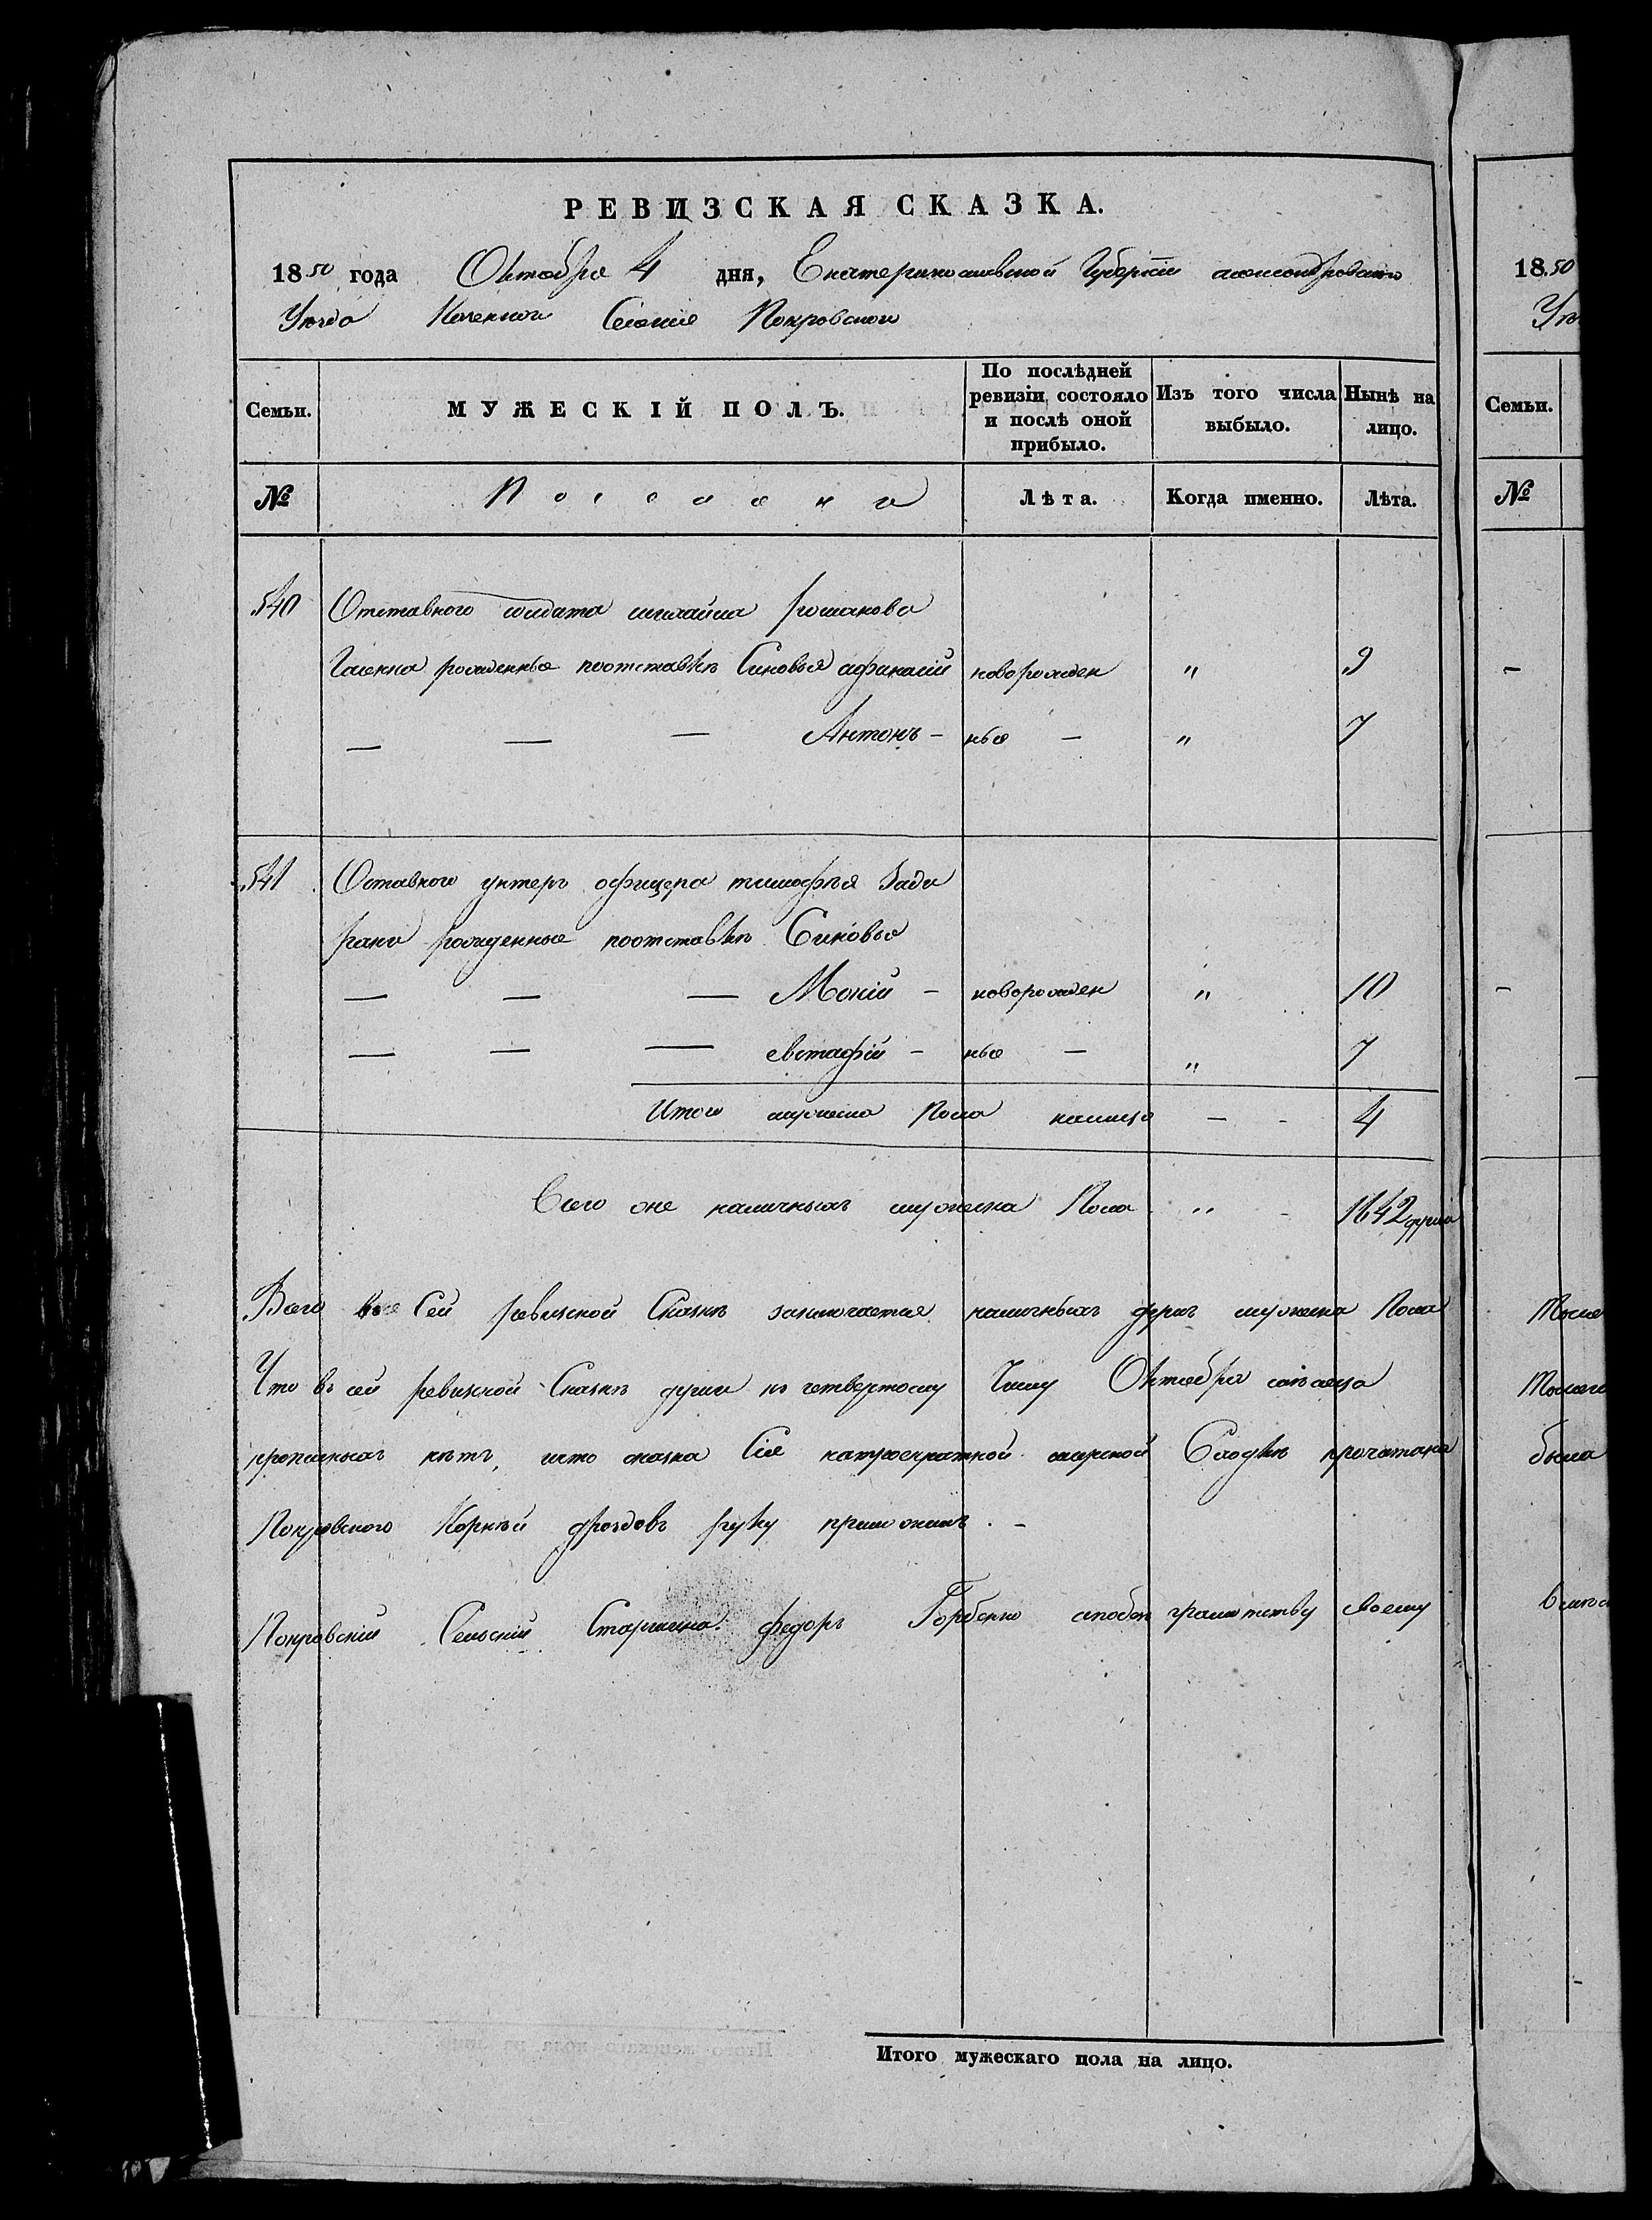 РЕВИЗСКАЯ СКАЗКА.
1850 года Октября 4 дня, Екатеринославской Губернии александровского
Уезда Селение Покровского
Семьи. МУЖЕСКІЙ ПОЛЪ. По послѣдней ревизіи состояло и послѣ оной прибыло. Изъ того числа выбыло. Нынѣ на лицо.
№ Поселяне Лѣта. Когда именно. Лѣта.
540 Отставного солдата михайла романова
рожденные поотставкѣ Синовья афанасий новорожден " 9
— — — Антонъ - ные - " 7
541 Отставного унтеръ офицера тимофѣя
рожденные поотставкѣ Синовья
— — — Мокій - новорожден " 10
— — — евстафій - ные - " 7
Итого мужеска Пола налицо - - 4
Всего наличныхъ мужеска Пола " - 1642 душа
Всего Сей ревизкой Сказкѣ заключается наличныхъ душъ мужеска Пола
Что въ сей ревизкой Сказкѣ души къ четвертому Числу Октября мѣсяца
прописныхъ нѣтъ, што сказка Сія мирской Сходкѣ прочитана
Покровского Корнѣй дроздовъ руку приложилъ. -
Покровский Сельский Старшина федоръ Горбенко своему
Итого мужескаго пола на лицо.
1850
Семьи.
№
-
-
была